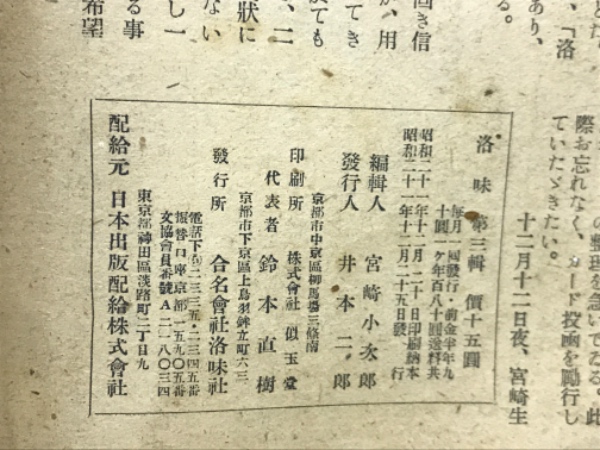 の整理を急いでゐる。此
際お忘れなく、カード投函を勵行し
ていたゞきたい。
十二月十二日夜、宮崎生
「洛
あり、
る。
回き信
、用
てき
ても
、二
狀に
ない
し一
る事
希望
洛味 第三輯 價十五圓
每月一囘發行・前金半年九
十圓一ケ年百八十圓送料共
昭和二十一年十二月二十日印刷納本
昭和二十一年十二月二十五日發行
編輯人 宮崎小次郎
發行人 井本二郎
京都市中京區柳馬場三條南
印刷所 株式會社似玉堂
代表者 鈴木直樹
京都市下京區上鳥羽鉾立町六三
發行所 合名會社洛味社
電話下⑤二三三五・二三四五番
振替口座京都一五九〇五番
文協會員番號A二一八〇三四
東京都神田區淡路町二丁目九
配給元 日本出版配給株式會社